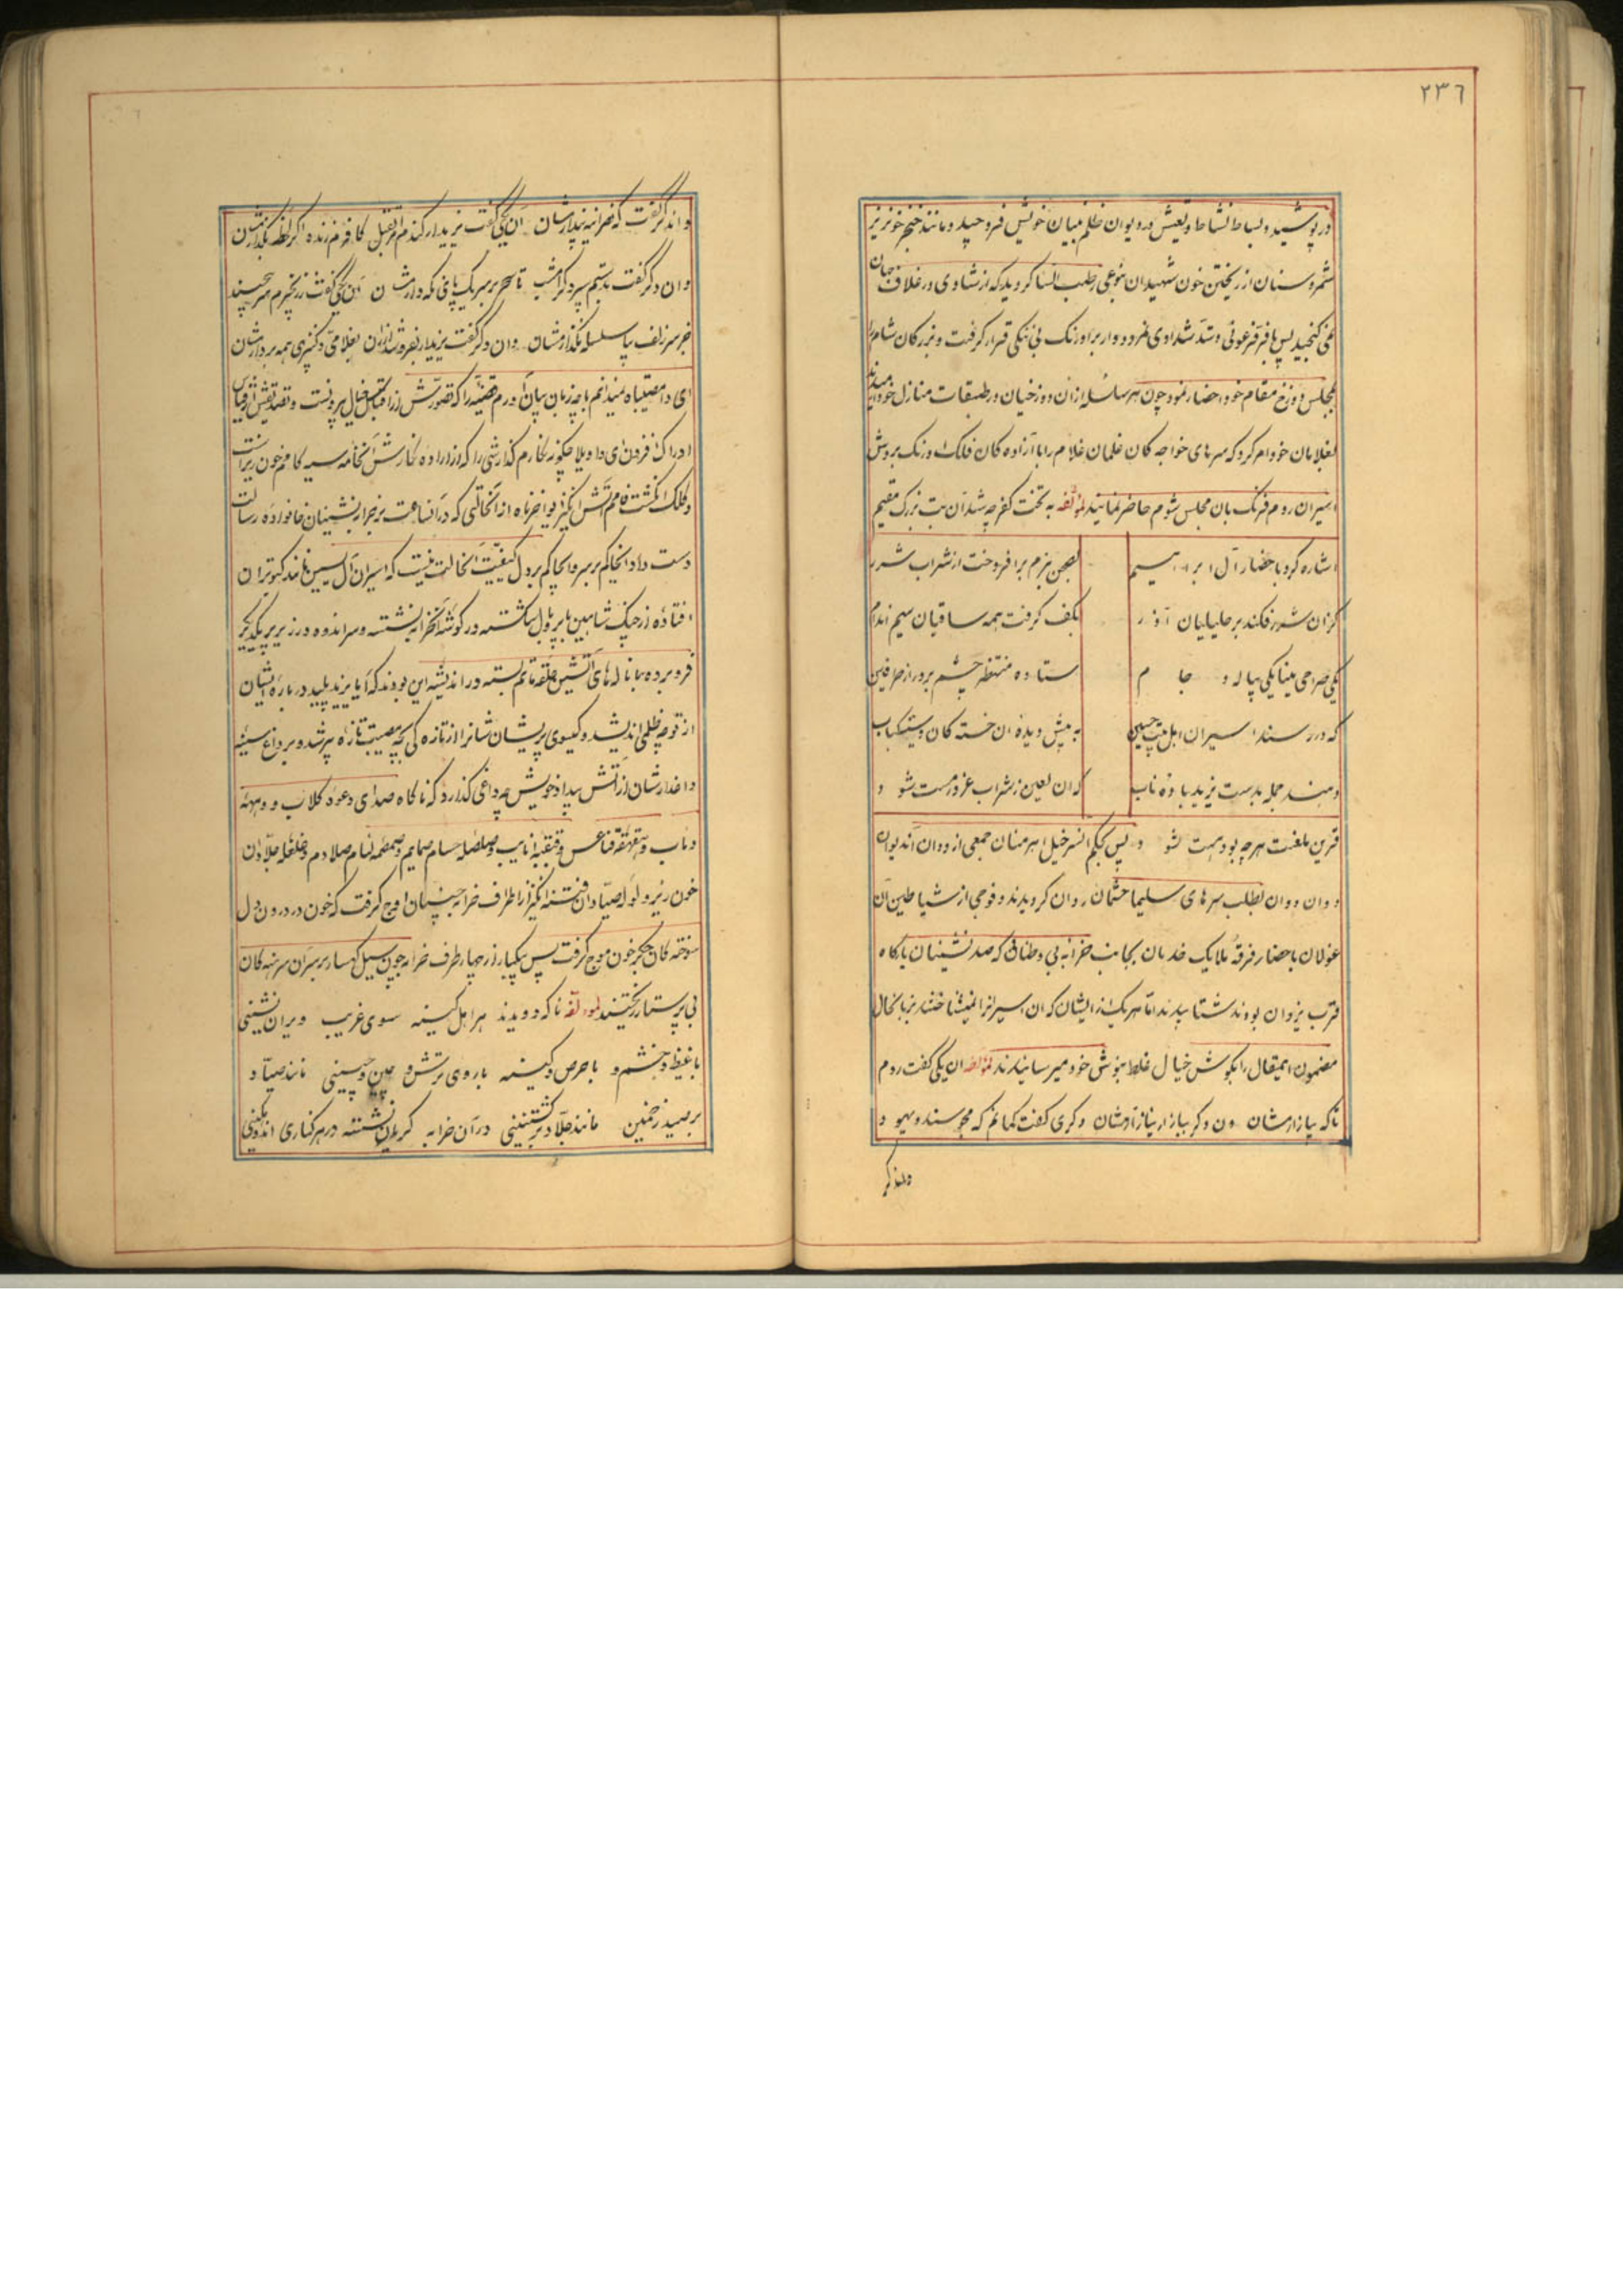 ٢٣٦
در پوشید و بساط نشاط و تعیش در دیوان ظلم بنیان خویش فرو چید و مانند خنجر خونریز
شمر و سنان از ریختن خون شهیدان بنوعی رطب اللسا کردید که از شادی در غلاف جهان
نمی کنجید پس با فر فرعونی و شد شدادی نمرود وار بر اورنک بی ننکی قرار کرفت و بزرکان شام را
بمجلس دوزخ مقام خود احضار نمود چون هر سلسله از ان دوزخیان در طبقات منازل خود آرمیدند
بغلامان خود امر کرد که سرهای خواجه کان غلمان غلام را با آزاده کان فلک اورنک بروش
اسیران روم و فرنک بان مجلس شوم حاضر نمایند لمؤلفه به تخت کفر چه شد آن بت بزرک مقیم
اشاره کرد باحضار آل ابراهیم بصحن بزم برافروخت از شراب شرر
کزان شرر فکند بر خلیلیان آذر بکف کرفت همه ساقیان سیم اندام
یکی صراحی مینا یکی پیاله و جام ستاده منتظر چشم بر در از طرفین
که در رسند اسیران اهل بیت حسین به پیش دیده ان خسته کان و سینه کباب
دهند جمله بدست یزید باده ناب که ان لعین ز شراب غرور مست شود
قرین ملعنت هر چه بود و هست شود پس بحکم انسر خیل اهرمنان جمعی از دوان آندیوان
دوان دوان بطلب سرهای سلیمان حشمان روان کردیدند و فوجی از شیاطین آن
غولان باحضار فرقه ملایک خدمان بجانب خرابه بی وطنانی که صدر نشینان بارکاه
قرب یزدان بودند شتابیدند اما هر یک از ایشان که ان اسیرانرا نمیشناختند بزبانحال
مضمون اینمقال را بکوش خیال غلط بنوش خود میرسانیدند لمؤلفه ان یکی کفت روم
تاکه بیازارمشان وان دکر ببازار نیاز آرمشان دکری کفت کمانم که مجوسند و یهود
واندکر
واندکر کفت که نصرانیه پندارمشان آن یکی کفت یزید ار کندم امر بقتل کافرم زنده اکر لحظه بکذارمشان
وان دکر کفت بدستم سپرد کر امشب تا سحر بر سر یک پای نکه دارمشان آن یکی کفت زنجیرم سر پیچیند
جز سر زلف بپا سلسله نکذارمشان وان دکر کفت یزید ار بفروشد ازان بغلامی و کنیزی همه بردارمشان
ای وا مصیبتاه نمیدانم با چه زبان بیان آورم قضیه را که تصورش از اقتباس خیال بیرونست و تصدیقش از قیاس
ادراک افزون ای واویلا چکونه نکارم کذارشی را که از اراده نکارشش آنخامه سیه کام خون ریز است
و کلک انکشت فامم آتش انکیز فواخزناه از انحالتی که در آنساعت بر خرابه نشینان خانواده رسالت
دست داد انخاکم بر سر و انخاکم بر دل کیفیت انحالت نیست که اسیران آل یسین مانند کبوتران
افتاده از چنک شاهین با پر و بال شکسته در کوشه انخرابه نشسته و سر اندوه در زیر پر یکدیکر
فرو برده با ناله های آتشین حلقه ماتم بسته در اندیشه این بودند که آیا یزید پلید در باره ایشان
از نو چه ظلمی اندیشد و کیسوی پریشان شانرا از تازه کی بچه مصیبت تازه پریشد و بر داغ سینه
داغدارشان از آتش بیداد خویش چه داغی کذارد که ناکاه صدای دعوه کلاب و
خون ریز و لوله صیادان فتنه انکیز از اطراف خرابه چنان اوج کرفت که خون در درون دل
سوخته کان جکر خون موج کرفت پس یکبار از چهار طرف خرابه چون سیل کهسار بر سران سر برهنه کان
بی پرستار ریختند لمؤلفه ناکه دویدند هر اهل کینه سوی غریب ویران نشینی
با غیظ و خشم و با حرص و کینه با روی ترش و چین و جبینی مانند صیاد
بر صید زخمین مانند جلاد بر کشتنینی در آن خرابه کریان نشسته در هر کناری اندوهکینی